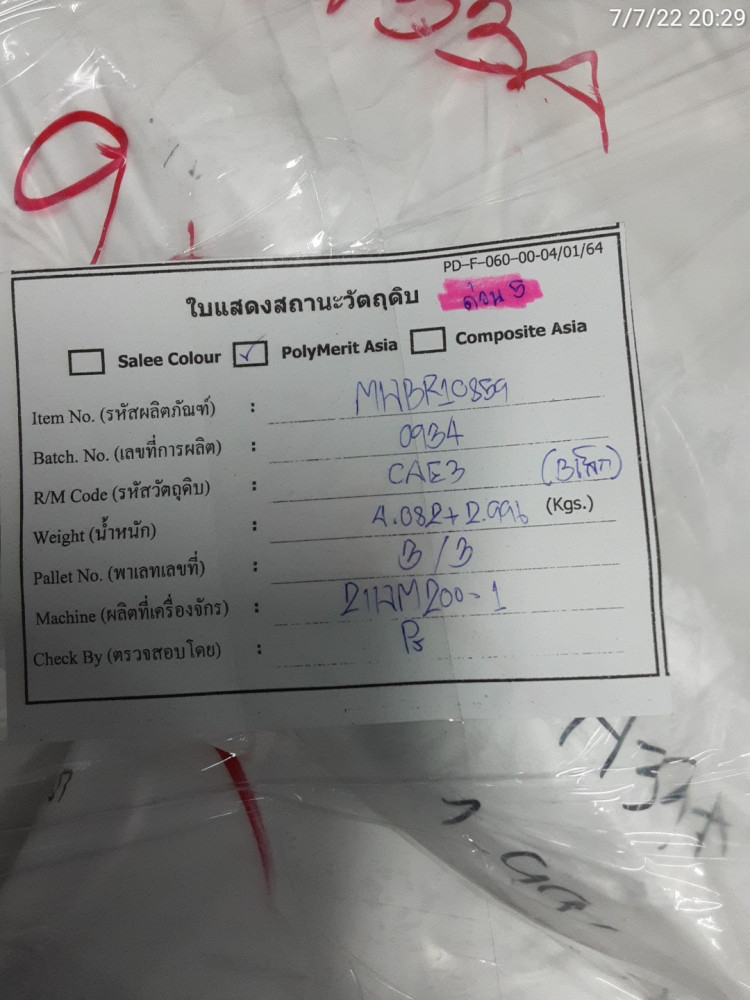 7/7/22 20:29
PD-F-060-00-04/01/64
ใบแสดงสถานะวัตถุดิบ ด่วน 5
Salee Colour ✓ PolyMerit Asia Composite Asia
Item No. (รหัสผลิตภัณฑ์) : MWBR10859
Batch. No. (เลขที่การผลิต) : 0934
R/M Code (รหัสวัตถุดิบ) : CAE3
Weight (น้ำหนัก) : 4.082+2.996 (Kgs.)
Pallet No. (พาเลทเลขที่) : 3/3
Machine (ผลิตที่เครื่องจักร) :
Check By (ตรวจสอบโดย) :